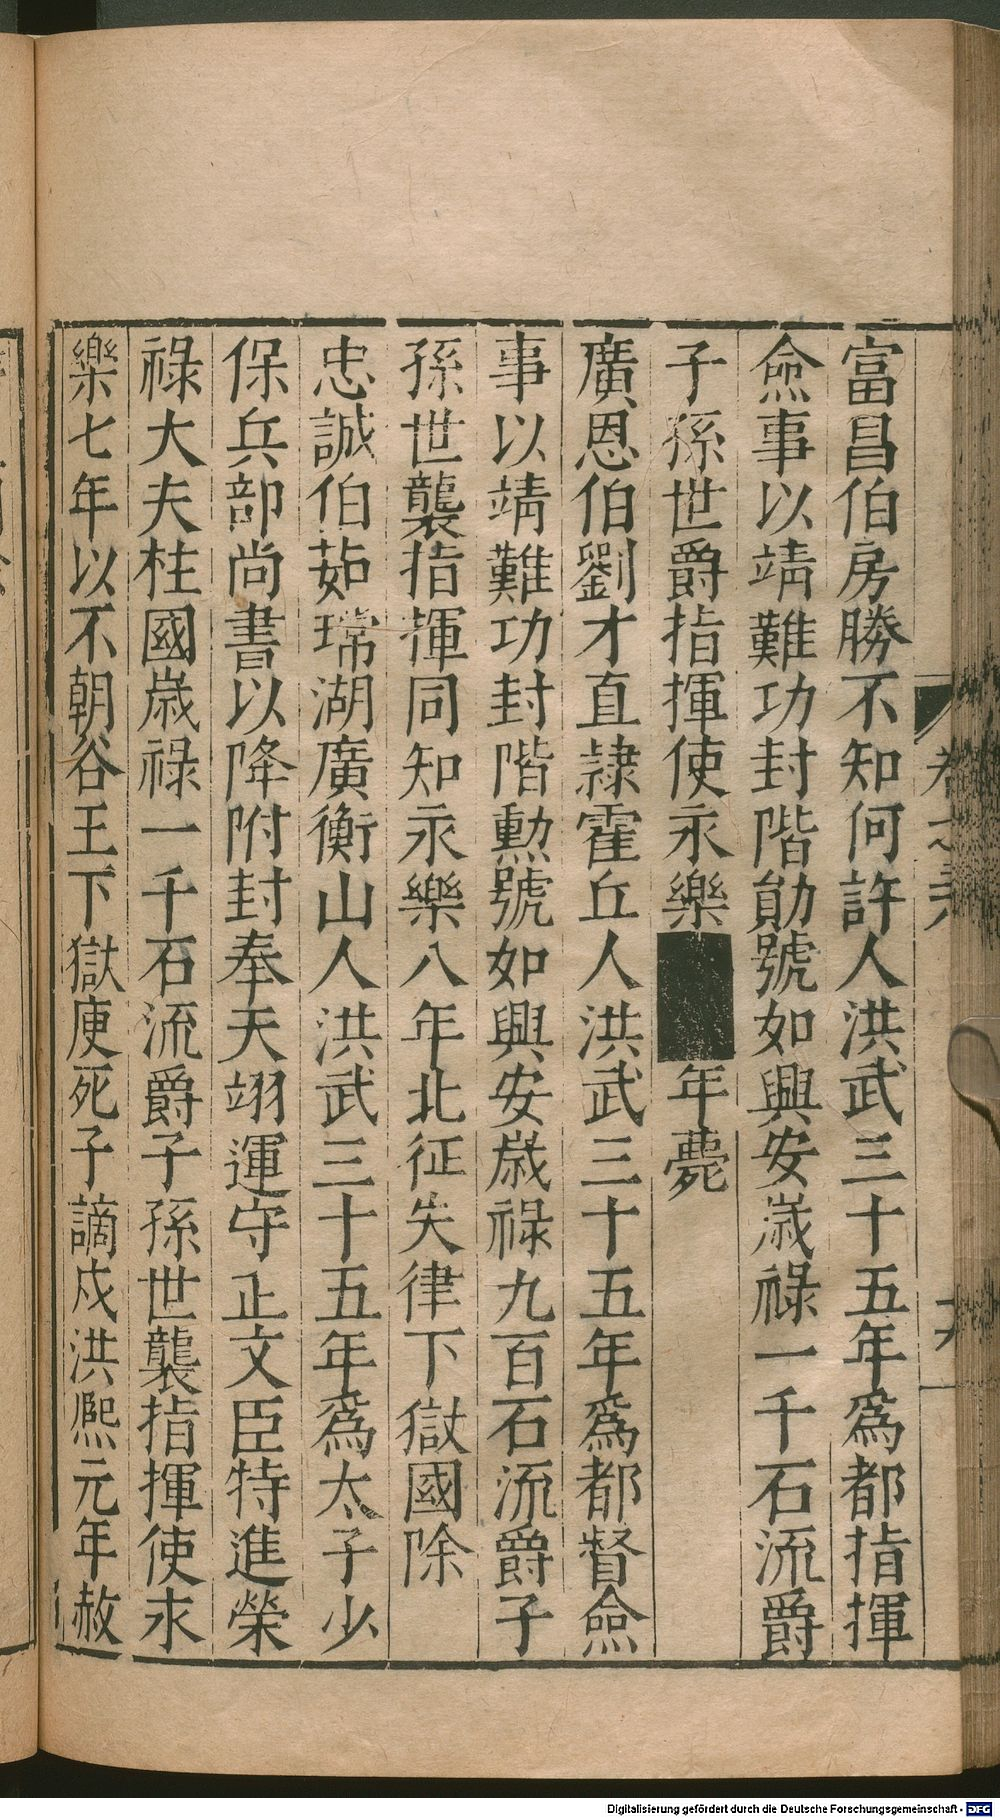 富昌伯房勝不知何許人洪武三十五年爲都指揮
僉事以靖難功封階勛號如興安歲祿一千石流爵
子孫世爵指揮使永樂
年薨
廣恩伯劉才直隸霍丘人洪武三十五年爲都督僉
事以靖難功封階勲號如興安歲祿九百石流爵子
孫世襲指揮同知永樂八年北征失律下獄國除
忠誠伯茹瑺湖廣衡山人洪武三十五年爲太子少
保兵部尚書以降附封奉天翊運守正文臣特進榮
祿大夫柱國歲祿一千石流爵子孫世襲指揮使永
樂七年以不朝谷王下獄庾死子謫戍洪熈元年赦
Digitalisierung gefördert durch die Deutsche Forschungsgemeinschaft - DFG